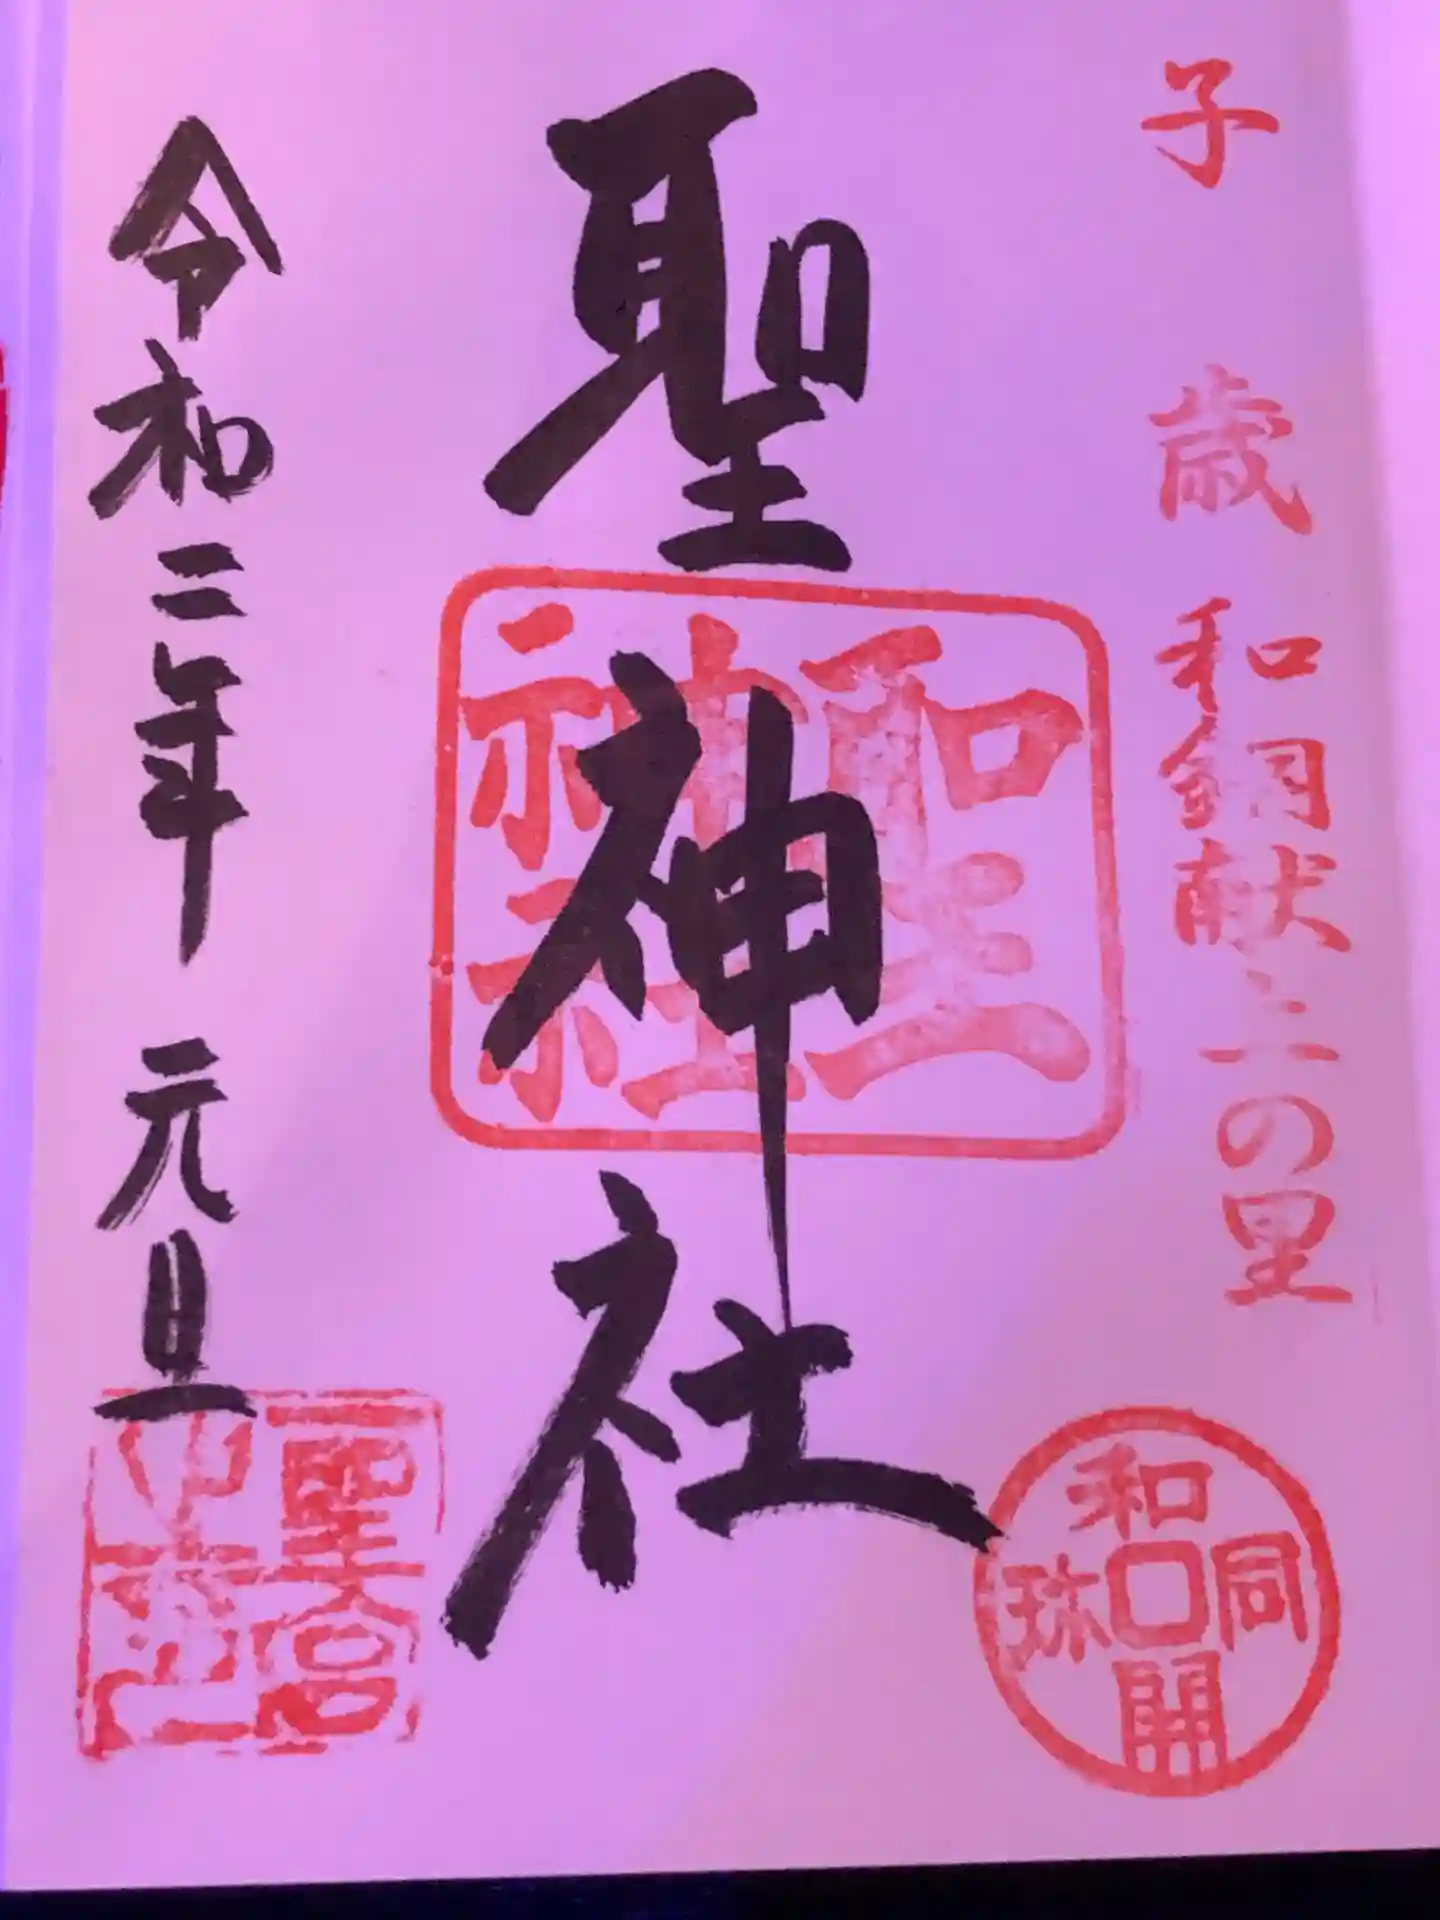 子歳
和銅献上の里
和同開珎
聖神社
和聖
神社
令和二年 元旦
聖宮